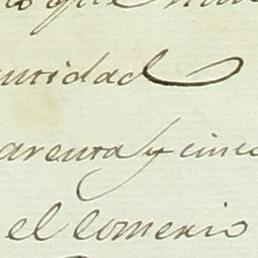 que
antidad
arenta y cinc
el comercio